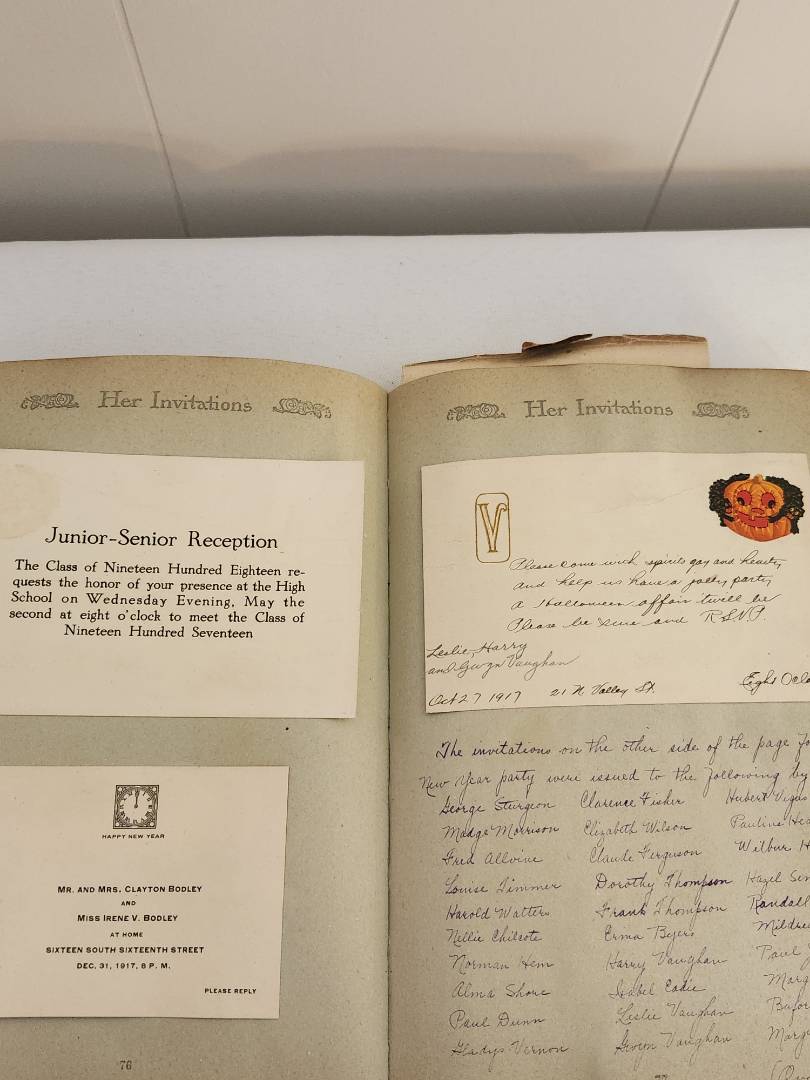 Her Invitations
Junior-Senior Reception
The Class of Nineteen Hundred Eighteen re-
quests the honor of your presence at the High
School on Wednesday Evening, May the
second at eight o'clock to meet the Class of
Nineteen Hundred Seventeen
HAPPY NEW YEAR
MR. AND MRS. CLAYTON BODLEY
AND
MISS IRENE V. BODLEY
AT HOME
SIXTEEN SOUTH SIXTEENTH STREET
DEC. 31, 1917, 8 P. M.
PLEASE REPLY
76
Her Invitations
V
Please come with spirits gay and hearty
and help us have a jolly party
a Halloween affair twill be
Please be sure and R.S.V.P.
Leslie, Harry
and Gwyn Vaughan
Oct 27 1917 21 N Valley St. Eight Oclo
The invitations on the other side of the page fo
New Year party were issued to the following by
George Sturgeon Clarence Fisher Hubert
Madge Morrison Elizabeth Wilson Pauline Hea
Fred Allvine Claude Ferguson Wilbur H
Louise Timmer Dorothy Thompson Hazel
Harold Watters Frank Thompson Randall
Nellie Chilcote Erma Byers Mildre
Norman Hem Harry Vaughan Paul
Alma Shore Isabel Eadie Marg
Paul Dunn Leslie Vaughan
Gladys Vernon Gwyn Vaughan Marg